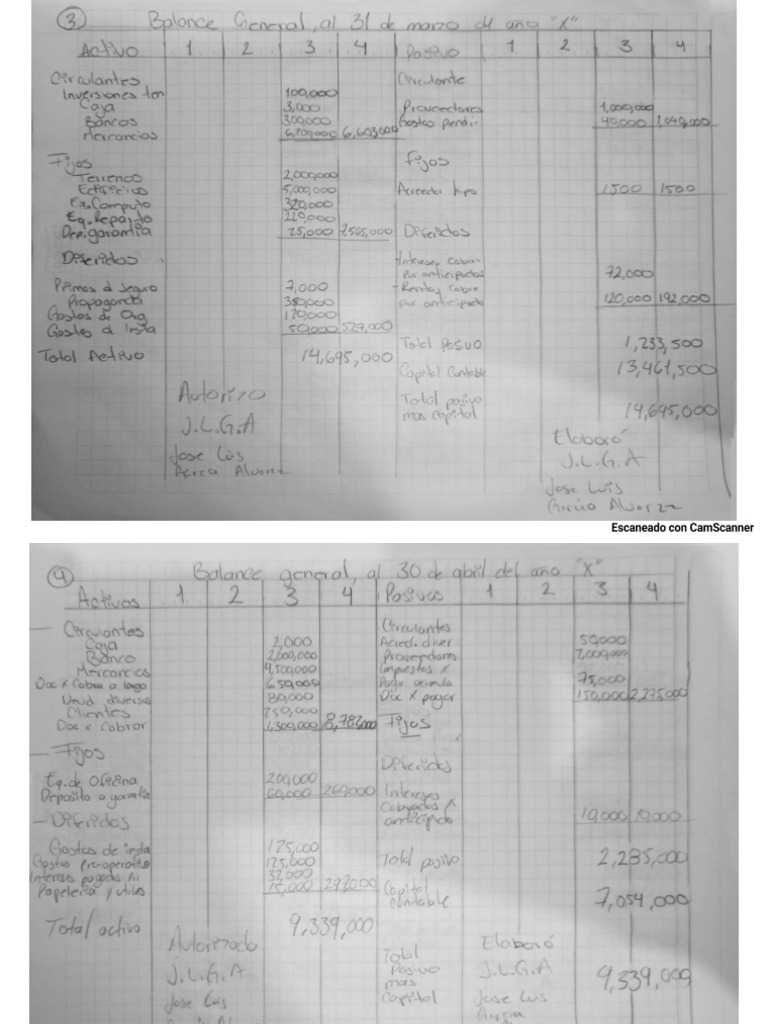 3 Balance General, al 31 de marzo del año "X"
Activo 1 2 3 4 Pasivo 1 2 3 4
Circulantes Circulante
Inversiones 100,000
Caja 3,000 Proveedores 1,000,000
Bancos 300,000 Gastos pendi. 40,000 1,040,000
Mercancias 6,603,000
Fijos Fijos
Terrenos 2,000,000
Edificios 5,000,000 Acreedor hipo 1500 1500
Eq. Computo 320,000
Eq. Reparto 220,000
Dep. garantia 25,000 7,565,000 Diferidos
Diferidos Intereses cobros
por anticipados 72,000
Primas d seguro 7,000 - Rentas cobro
Propaganda por anticipado 120,000 192,000
Gastos de Org
Gastos d Insta 50,000
Total Activo 14,695,000 Total Pasivo 1,233,500
Capital Contable 13,461,500
Total pasivo mas capital 14,695,000
Autorizo Elaboró
J.L.G.A J.L.G.A
Jose Luis Jose Luis
Escaneado con CamScanner
4 Balance general, al 30 de abril del año "X"
Activos 1 2 3 4 Pasivos 1 2 3 4
- Circulantes Circulantes
Caja 2,000 Acred. diver 50,000
Banco 2,000,000 Proveedores 2,000,000
Mercancias 4,500,000 Impuestos x
Doc x Cobra a largo 650,000 Pagar 75,000
Deud diversos 80,000 Doc x pagar 150,000 2,275,000
Clientes 250,000
Doc x Cobrar 1,300,000 8,782,000 Fijos
- Fijos
Diferidos
Eq. de Oficina 200,000
Deposito a garantia 60,000 260,000 Intereses
Cobrados x
- Diferidos anticipado 10,000 10,000
Gastos de insta 125,000
Gastos Pre-operativo 125,000 Total pasivo 2,285,000
Intereses pagados 32,000
Papeleria y utiles 15,000 297,000 Capital contable 7,054,000
Total activo 9,339,000
Autorizado Elaboró
Total Pasivo mas Capital 9,339,000
J.L.G.A J.L.G.A
Jose Luis Jose Luis